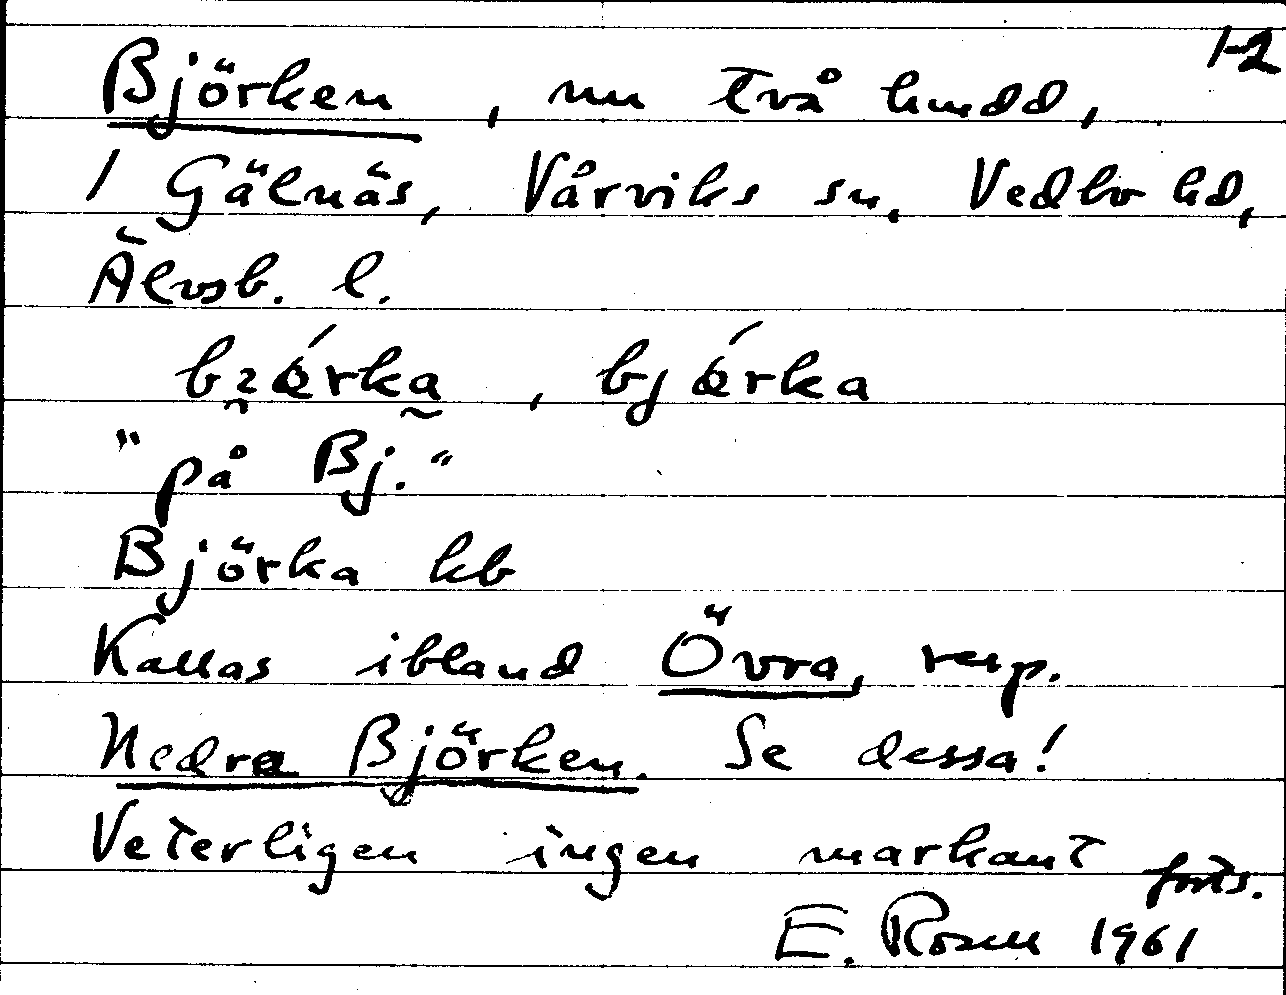 1-2
Björken, nu två hmdd,
1 Gälnäs, Vårviks sn, Vedbo hd,
Älvsb. l.
"på Bj."
Björka kb
Kallas ibland Övra, resp.
Nedra Björken. Se dessa!
Veterligen ingen markant forts.
E. Rosell 1961